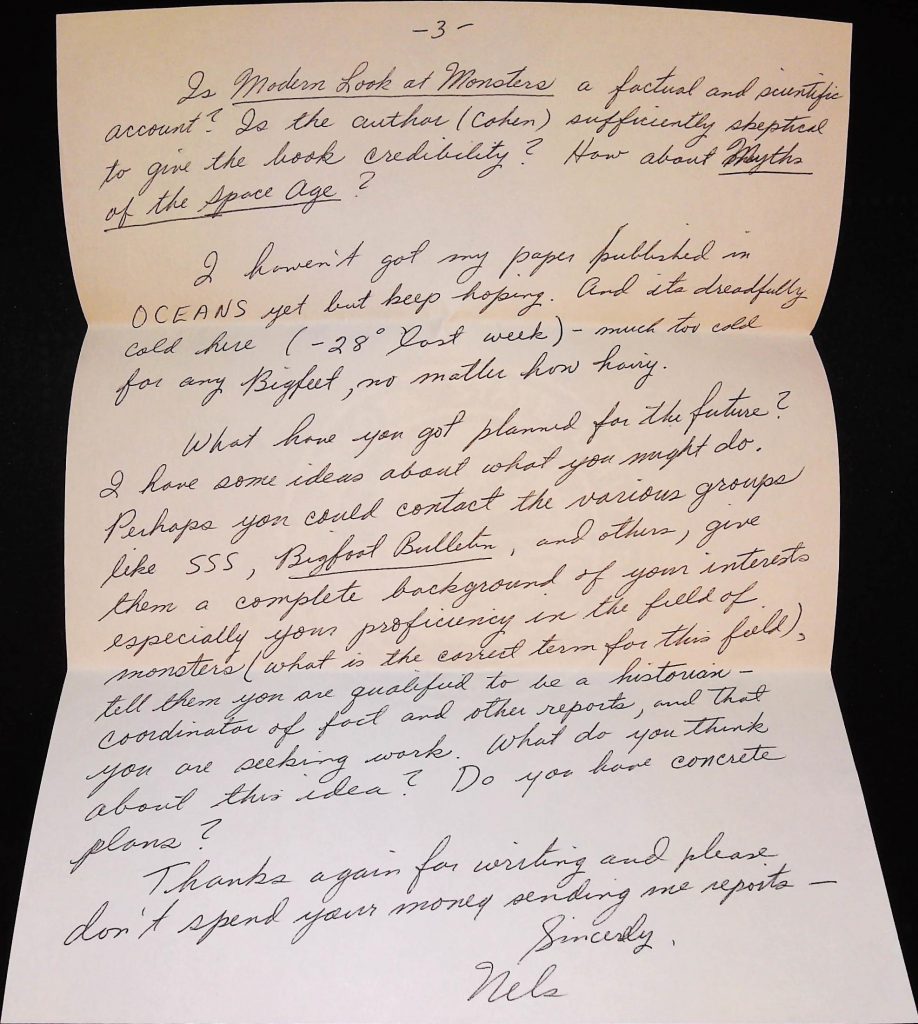 -3-
Is Modern Look at Monsters a factual and scientific
account? Is the author (Cohen) sufficiently skeptical
to give the book credibility? How about Myths
of the Space Age?
I haven't got my paper published in
OCEANS yet but keep hoping. And its dreadfully
cold here (-28° last week) - much too cold
for any Bigfeet, no matter how hairy.
What have you got planned for the future?
I have some ideas about what you might do.
Perhaps you could contact the various groups
like SSS, Bigfoot Bulletin, and others, give
them a complete background of your interests
especially your proficiency in the field of
monsters (what is the correct term for this field),
tell them you are qualified to be a historian -
coordinator of fact and other reports, and that
you are seeking work. What do you think
about this idea? Do you have concrete
plans?
Thanks again for writing and please
don't spend your money sending me reports -
Sincerely,
Nels